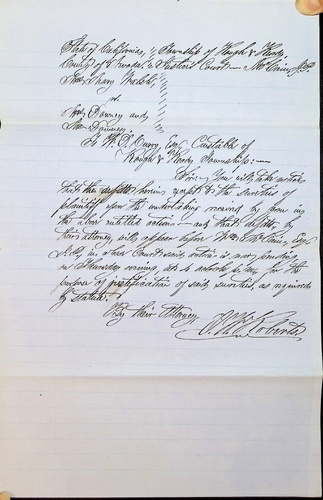 State of California, Township of Rough & Ready
County of Nevada. Justices Court
vs.
Downey and
Downey
To W. D. Curry Esq Constable of
Rough & Ready Township:—
Sir: You will take notice
that the defts herein except to the sureties of
plaintiff upon the undertaking received by you in
the above entitled action — and that defts, by
their attorney, will appear before Wm McCain, Esq
J.P., in whose Court said action is now pending
on Thursday evening at 6 o'clock for the
purpose of justification of said sureties, as required
by statute.
By their Attorney
Roberts